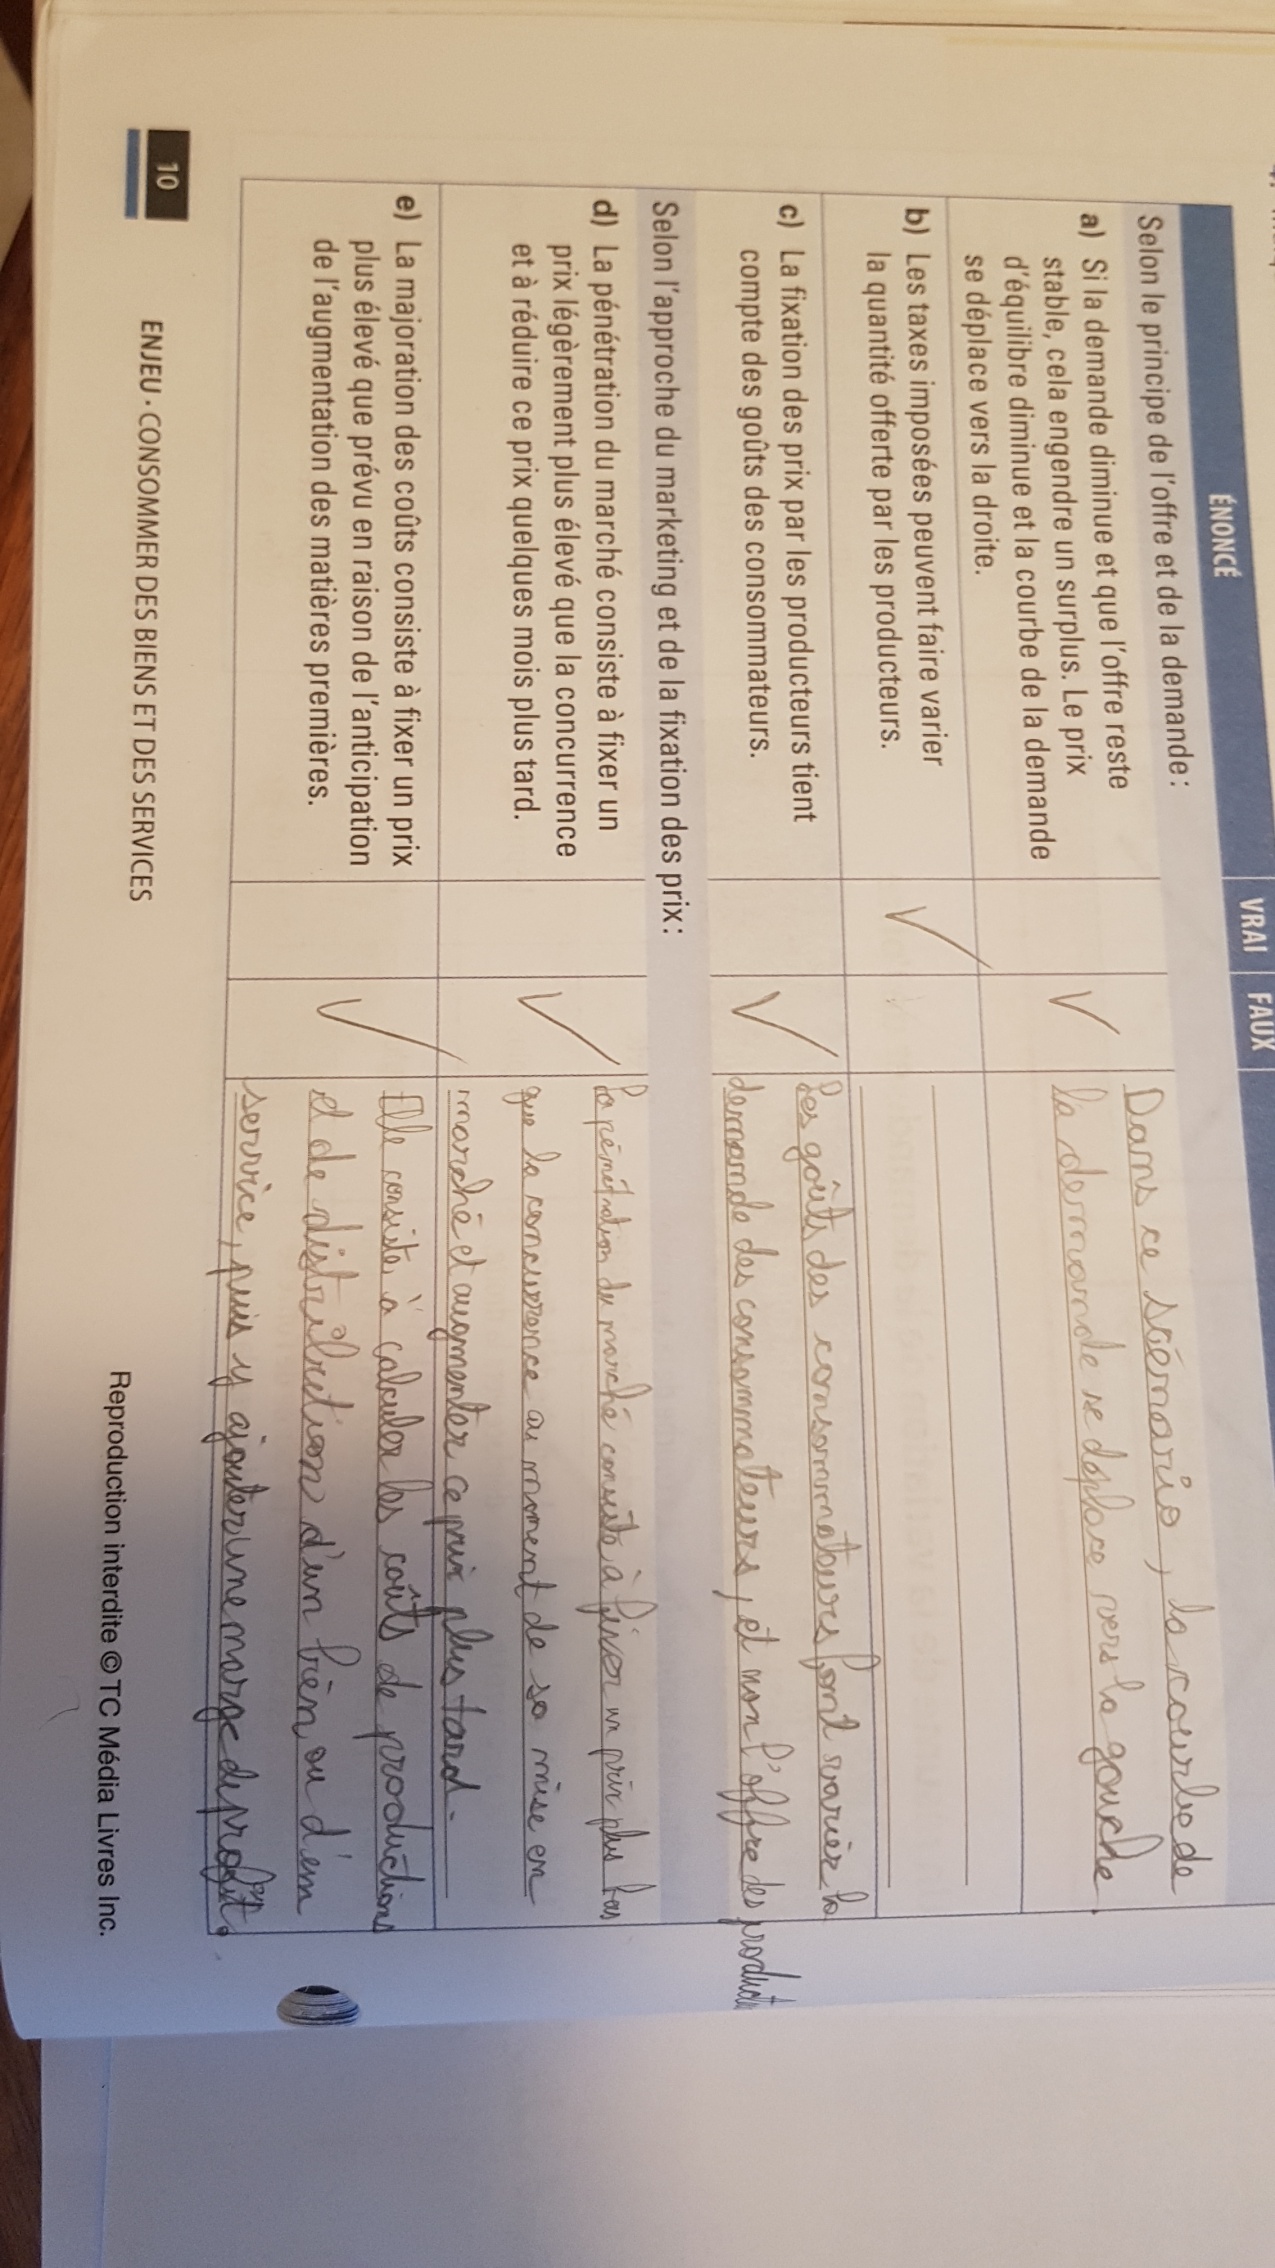 ÉNONCÉ
VRAI
FAUX
Selon le principe de l'offre et de la demande :
a) Si la demande diminue et que l'offre reste
stable, cela engendre un surplus. Le prix
d'équilibre diminue et la courbe de la demande
se déplace vers la droite.
Dans ce scénario, la courbe de
la demande se déplace vers la gauche.
b) Les taxes imposées peuvent faire varier
la quantité offerte par les producteurs.
c) La fixation des prix par les producteurs tient
compte des goûts des consommateurs.
Les goûts des consommateurs font varier la
demande des consommateurs, et non l'offre des
Selon l'approche du marketing et de la fixation des prix :
d) La pénétration du marché consiste à fixer un
prix légèrement plus élevé que la concurrence
et à réduire ce prix quelques mois plus tard.
La pénétration du marché consiste à fixer un prix plus bas
que la concurrence au moment de sa mise en
marché et augmenter ce prix plus tard.
e) La majoration des coûts consiste à fixer un prix
plus élevé que prévu en raison de l'anticipation
de l'augmentation des matières premières.
Elle consiste à calculer les coûts de productions
et de distribution d'un bien ou d'un
service, puis y ajouter une marge de profit.
10
ENJEU • CONSOMMER DES BIENS ET DES SERVICES
Reproduction interdite © TC Média Livres Inc.